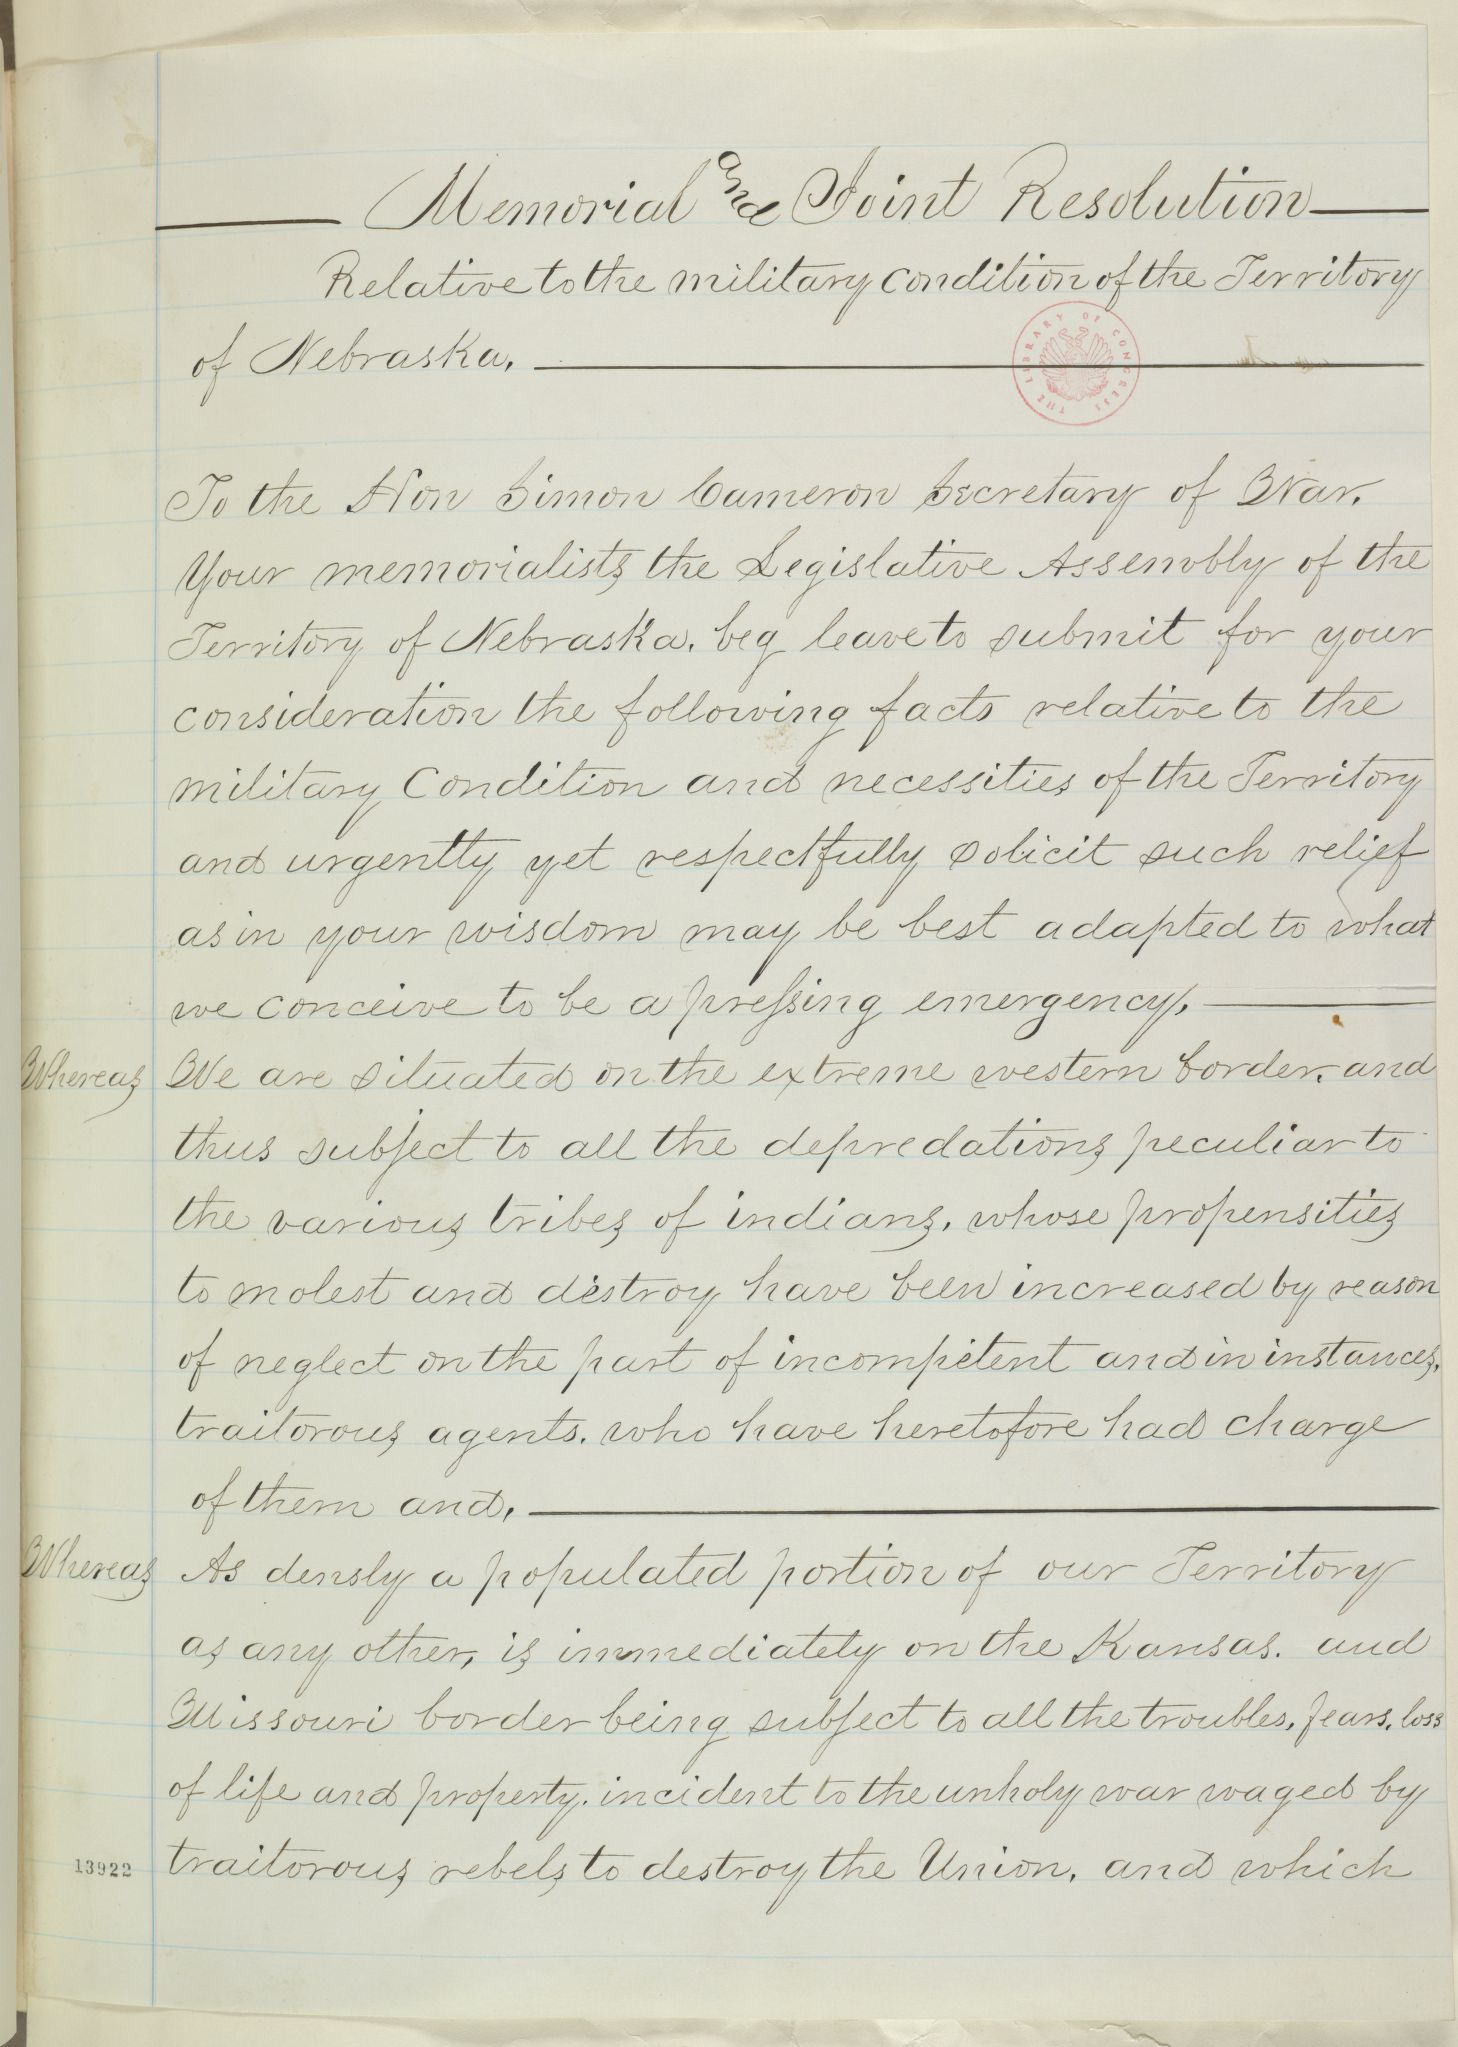 Memorial and Joint Resolution
Relative to the military condition of the Territory
of Nebraska.
THE LIBRARY OF CONGRESS
To the Hon Simon Cameron Secretary of War.
Your memorialists the Legislative Assembly of the
Territory of Nebraska. beg leave to submit for your
consideration the following facts relative to the
military Condition and necessities of the Territory
and urgently yet respectfully solicit such relief
as in your wisdom may be best adapted to what
we conceive to be a pressing emergency.
Whereas We are situated on the extreme western border. and
thus subject to all the depredations peculiar to
the various tribes of indians. whose propensities
to molest and destroy have been increased by reason
of neglect on the part of incompetent and in instances.
traitorous agents. who have heretofore had charge
of them and.
Whereas As densly a populated portion of our Territory
as any other, is immediately on the Kansas. and
Missouri border being subject to all the troubles. fears. loss
of life and property. incident to the unholy war waged by
13922 traitorous rebels to destroy the Union. and which